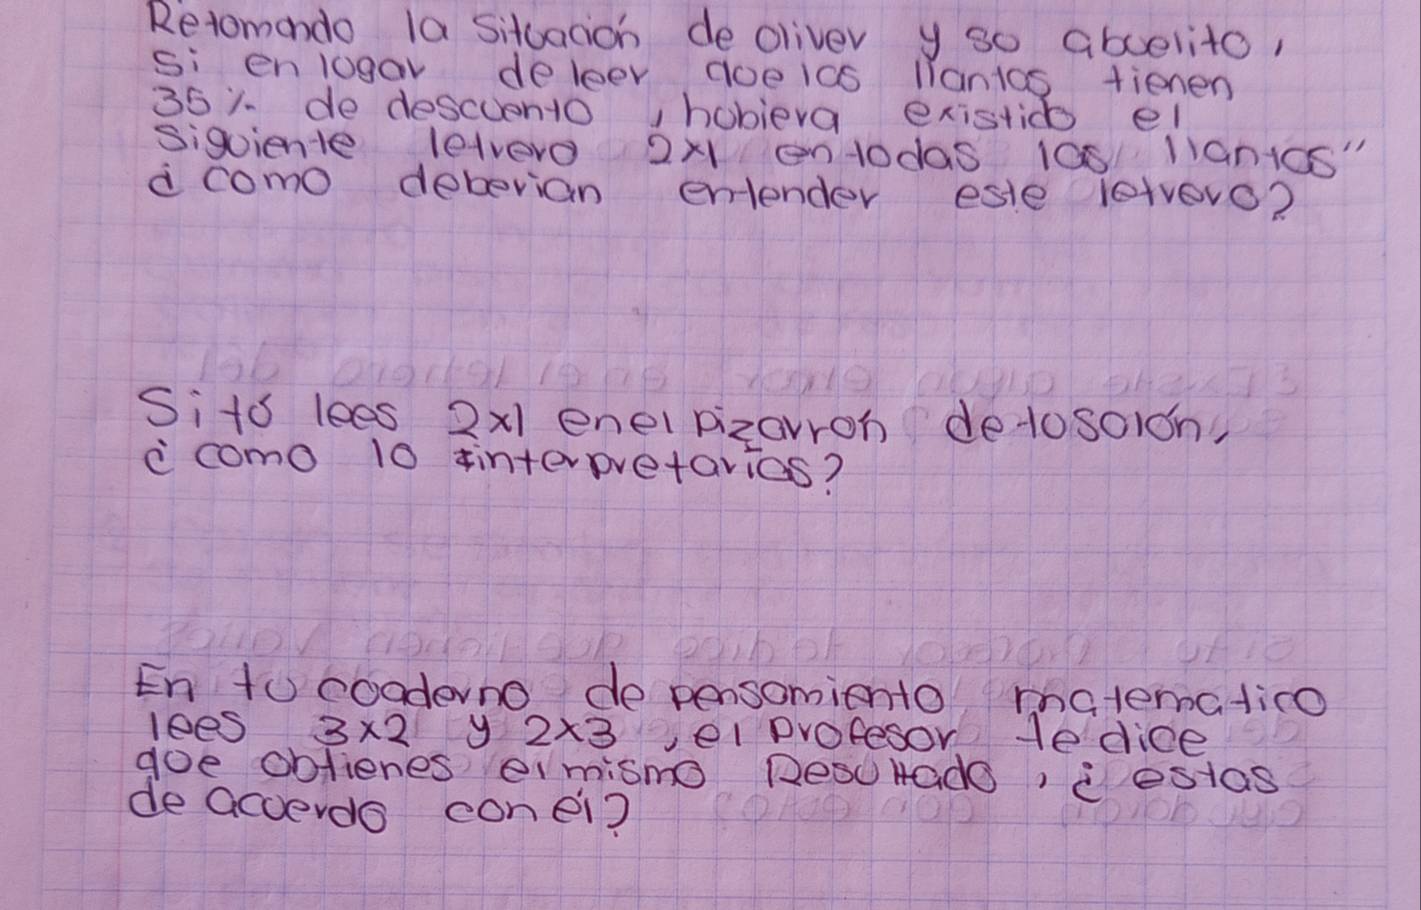 Retomando la situación de oliver y so abuelito,
si en logar de leer que las llantas tienen
35% de descuento, hobiera existido el
siguiente letrero 2x1 en todas las llantas"
¿ como deberian entender este letrero?
Si tó lees 2x1 en el pizarrón de tosalón,
¿ como lo interpretarias?
En tu coaderno de pensamiento matematico
lees 3x2 y 2x3, el profesor te dice
que obtienes el mismo Resultado, ¿ estas
de acuerdo con él?